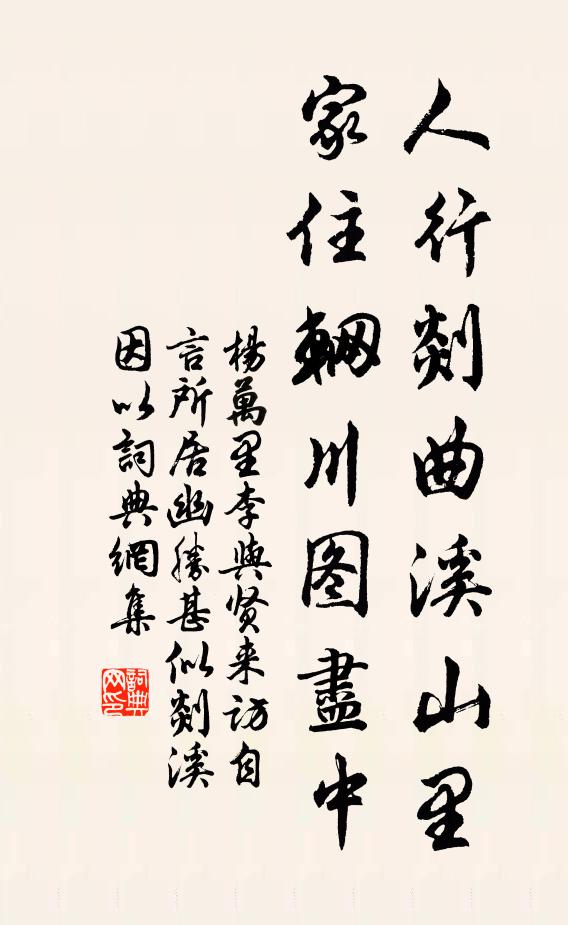 人行剡曲溪山里
家住輞川图盡中
楊萬里李與贤来访自
言所居幽勝甚似剡溪
因以詞典網集
詞典网印